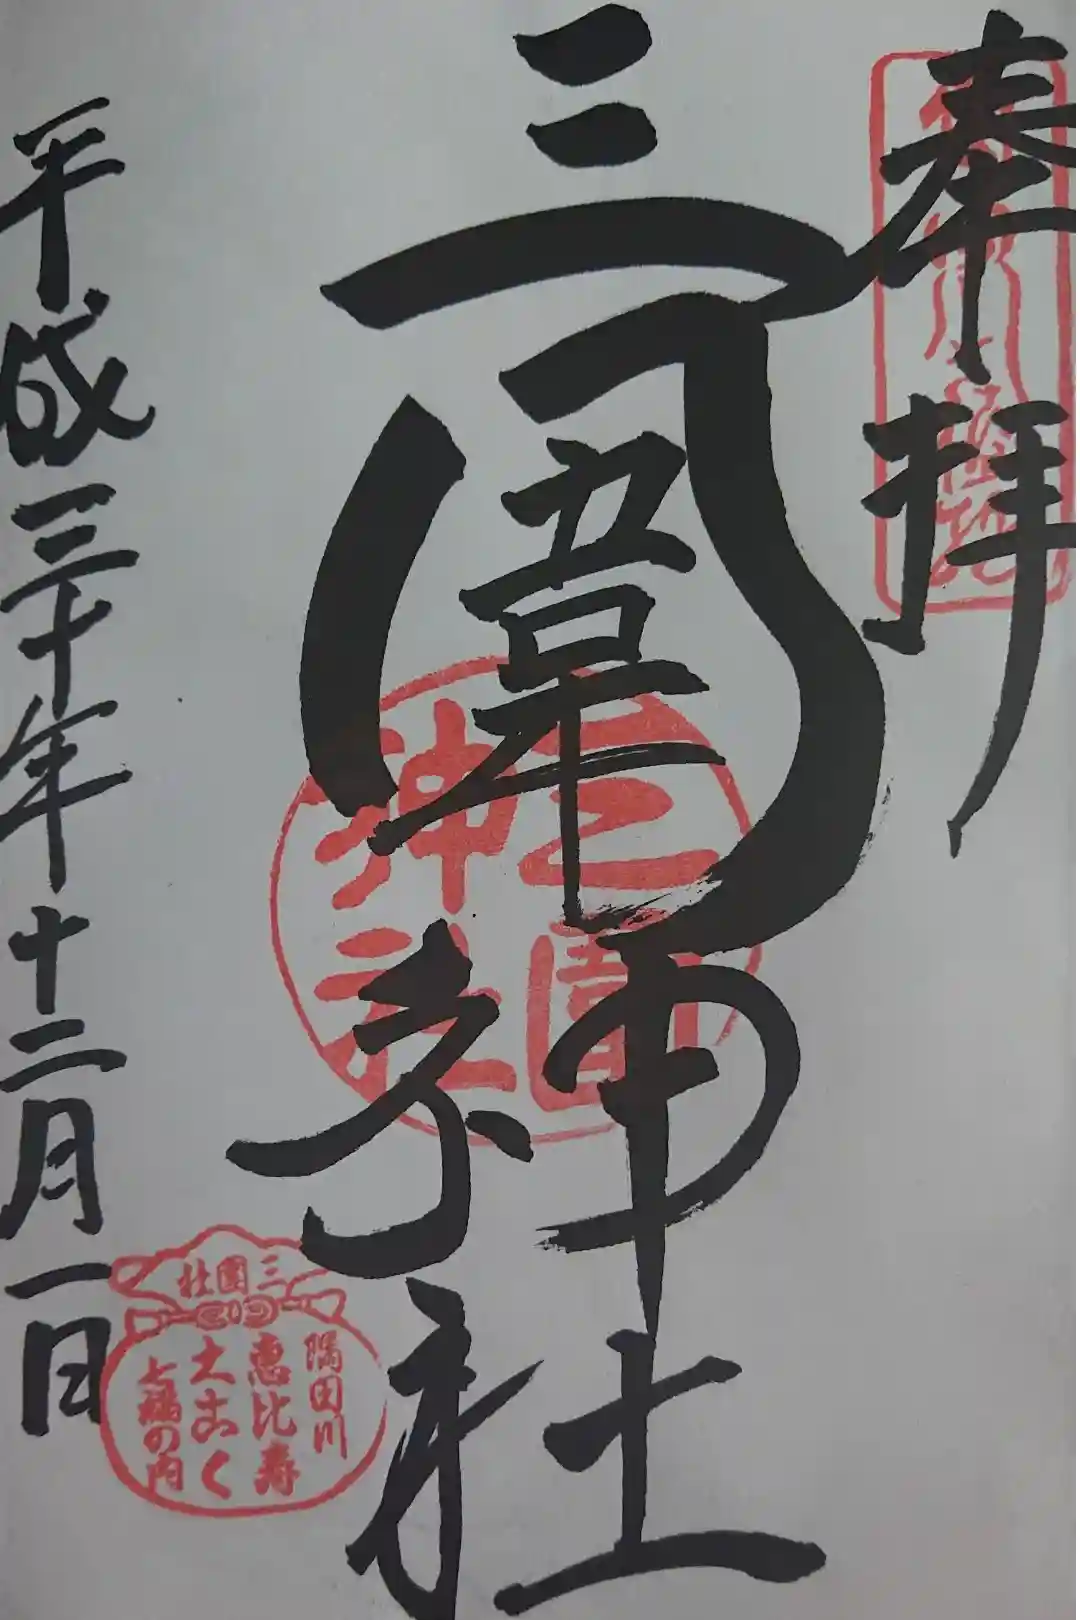 奉拝
三囲神社
三囲神社
平成三十年十二月一日
三囲社
隅田川
恵比寿
大こく
七福の内